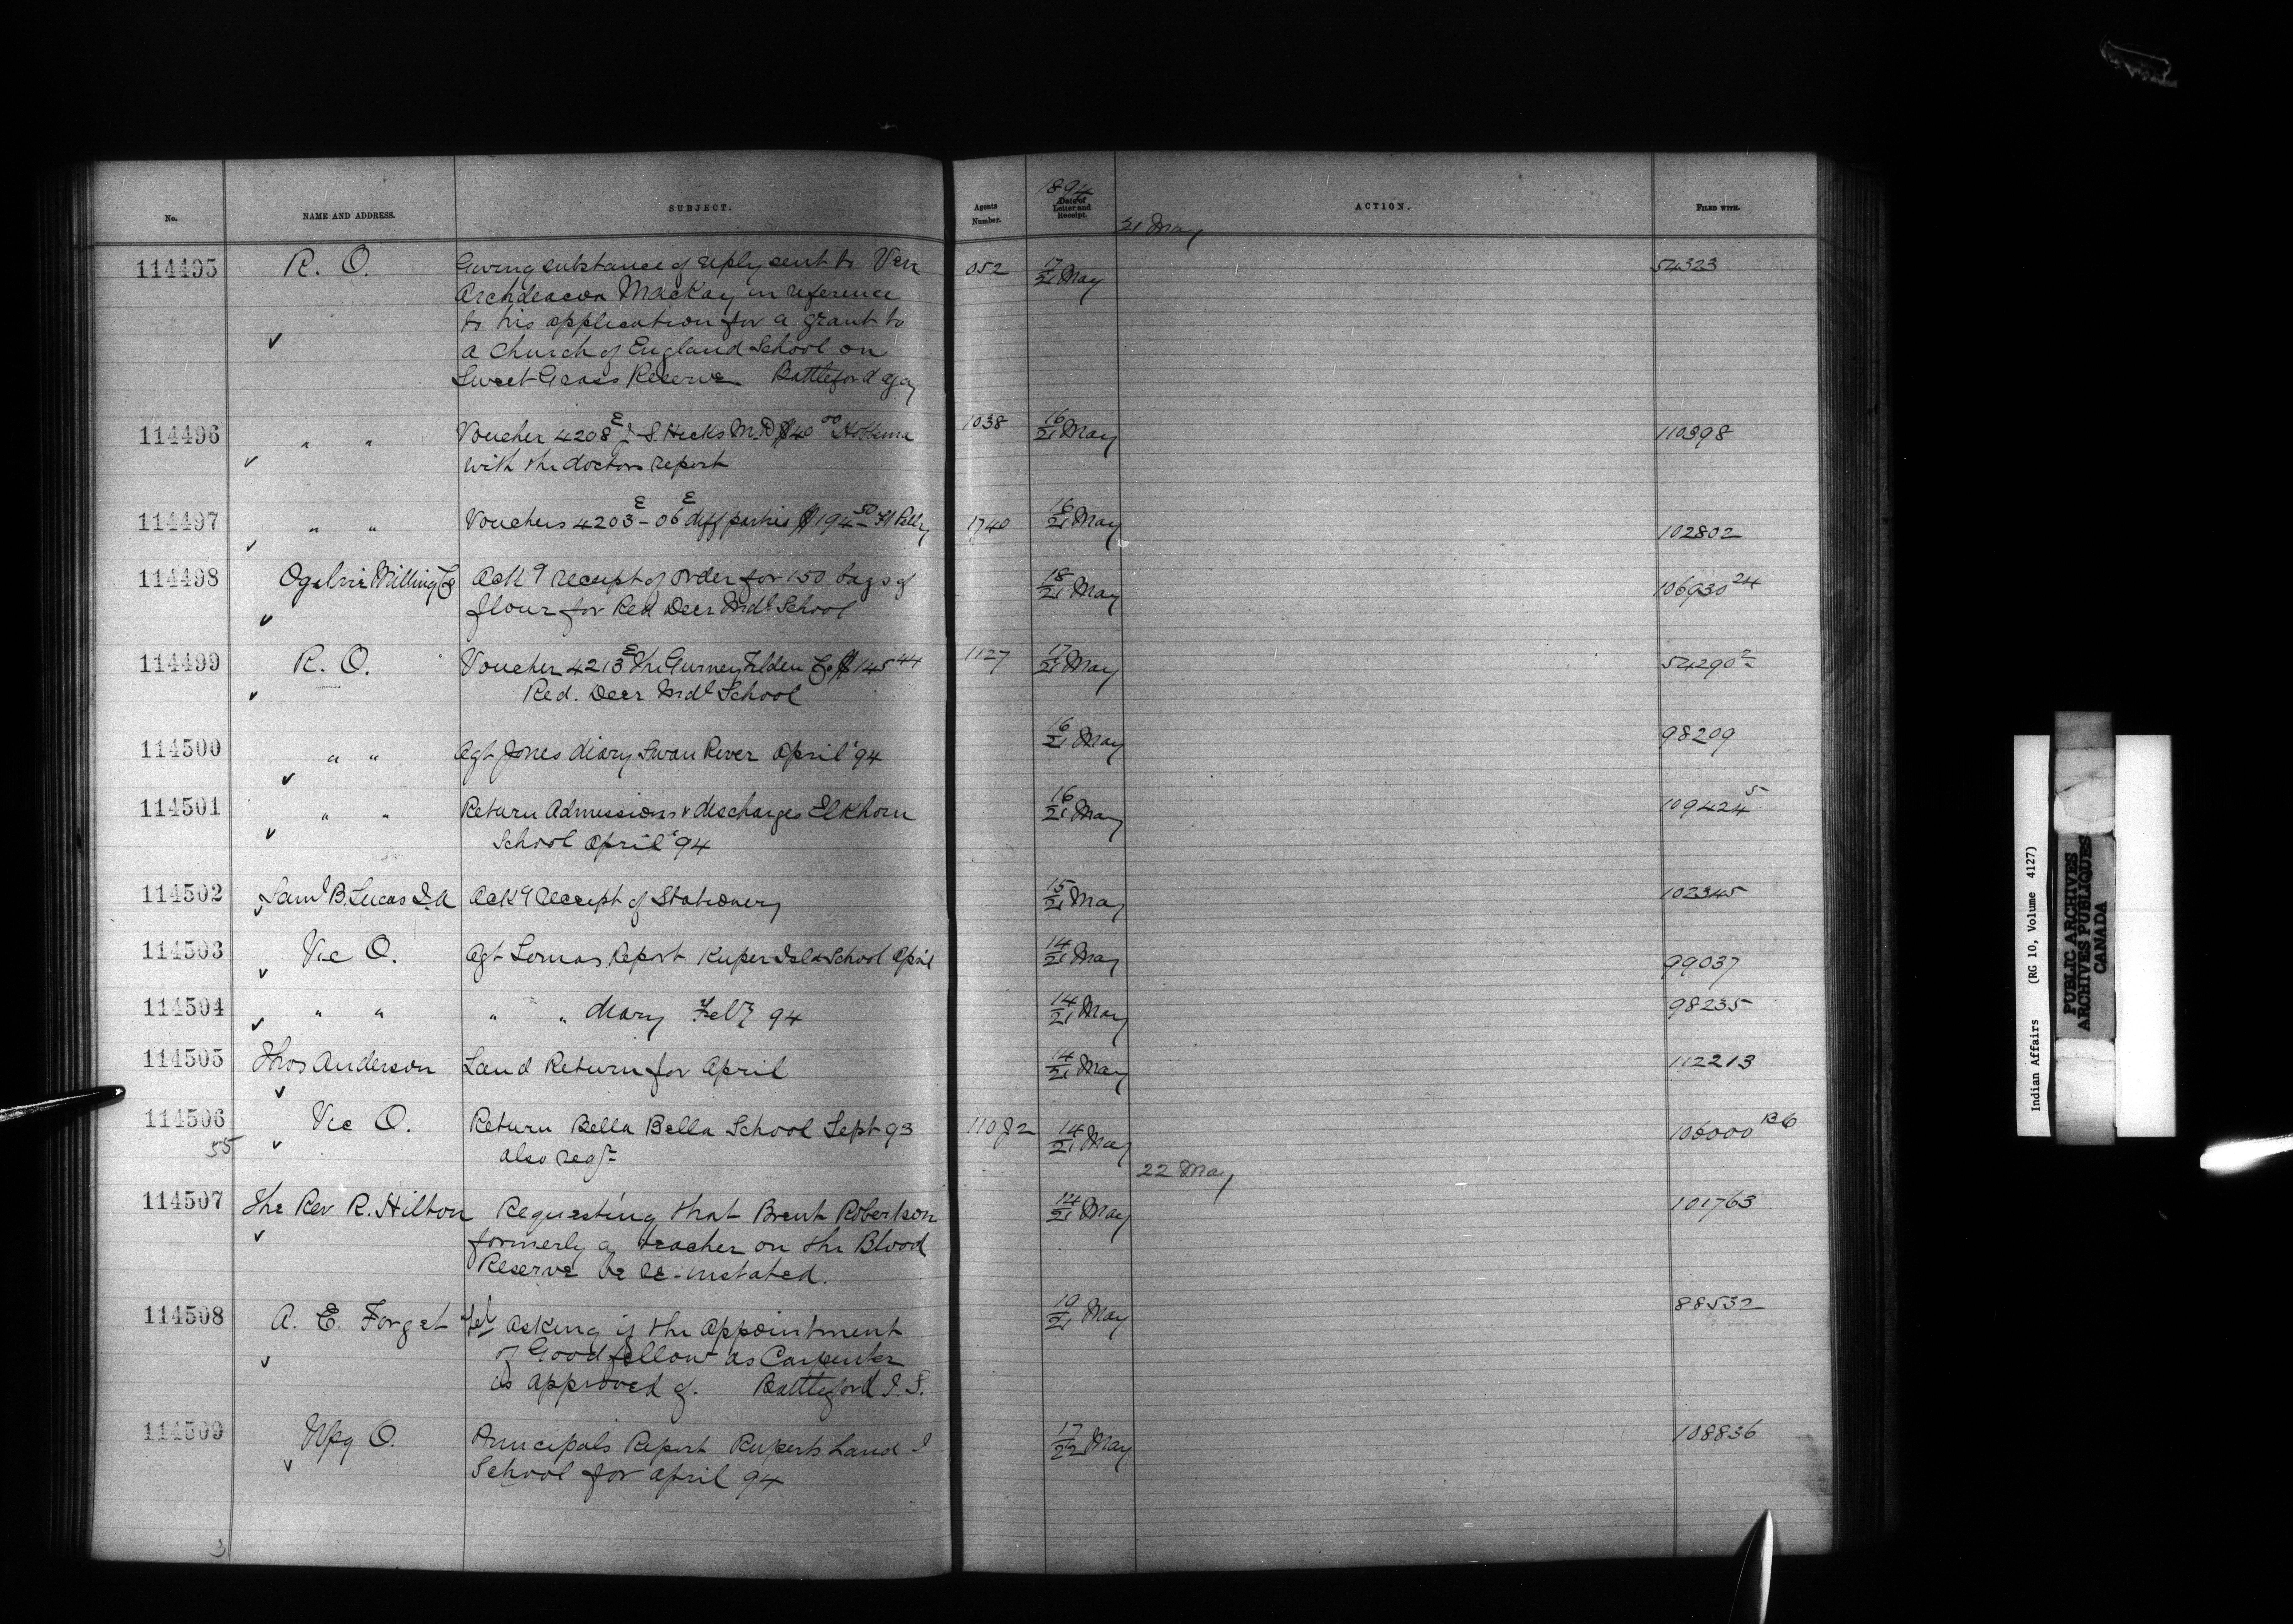 No. NAME AND ADDRESS. SUBJECT. Agents Number. 1894 Date of Letter and Receipt. ACTION. FILED WITH.
21 May
114495 R. O. Giving substance of reply sent to Ven 052 17/21 May 54323
Archdeacon Mackay in reference
to his application for a grant to
a Church of England School on
Sweet Grass Reserve Battleford agy
114496 " " Voucher 4208E J. S. Hicks M.D $40 00 Hobbema 1038 16/21 May 110398
with the doctors report
114497 " " Vouchers 4203E - 06E diff parties $194 50 Ft Pelly 1740 16/21 May 102802
114498 Ogilvie Milling Co Ackg receipt of order for 150 bags of 18/21 May 106930 24
flour for Red Deer Indl School
114499 R. O. Voucher 4213E The Gurney Tilden Co $145 44 1127 17/21 May 54290 2
Red. Deer Indl School
114500 " " Agt Jones diary Swan River April '94 16/21 May 98209
114501 " " Return Admissions & discharges Elkhorn 16/21 May 109424 5
School April '94
114502 Saml B. Lucas I.A Ackg receipt of Stationery 15/21 May 102345
114503 Vic O. Agt Lomas Report Kuper Isld School April 14/21 May 99037
114504 " " " " diary Feby 94 14/21 May 98235
114505 Thos Anderson Land Return for April 14/21 May 112213
114506 Vic O. Return Bella Bella School Sept 93 110 J2 14/21 May 106000 B6
55 also reqn
22 May
114507 The Rev R. Hilton Requesting that Brent Robertson 14/21 May 101763
formerly a teacher on the Blood
Reserve be re-instated.
114508 A. E. Forget Tel asking if the appointment 19/21 May 88532
of Goodfellow as Carpenter
is approved of. Battleford I. S.
114509 Wpg O. Principals Report Ruperts Land I 17/22 May 108836
School for April 94
Indian Affairs (RG 10, Volume 4127)
PUBLIC ARCHIVES
ARCHIVES PUBLIQUES
CANADA